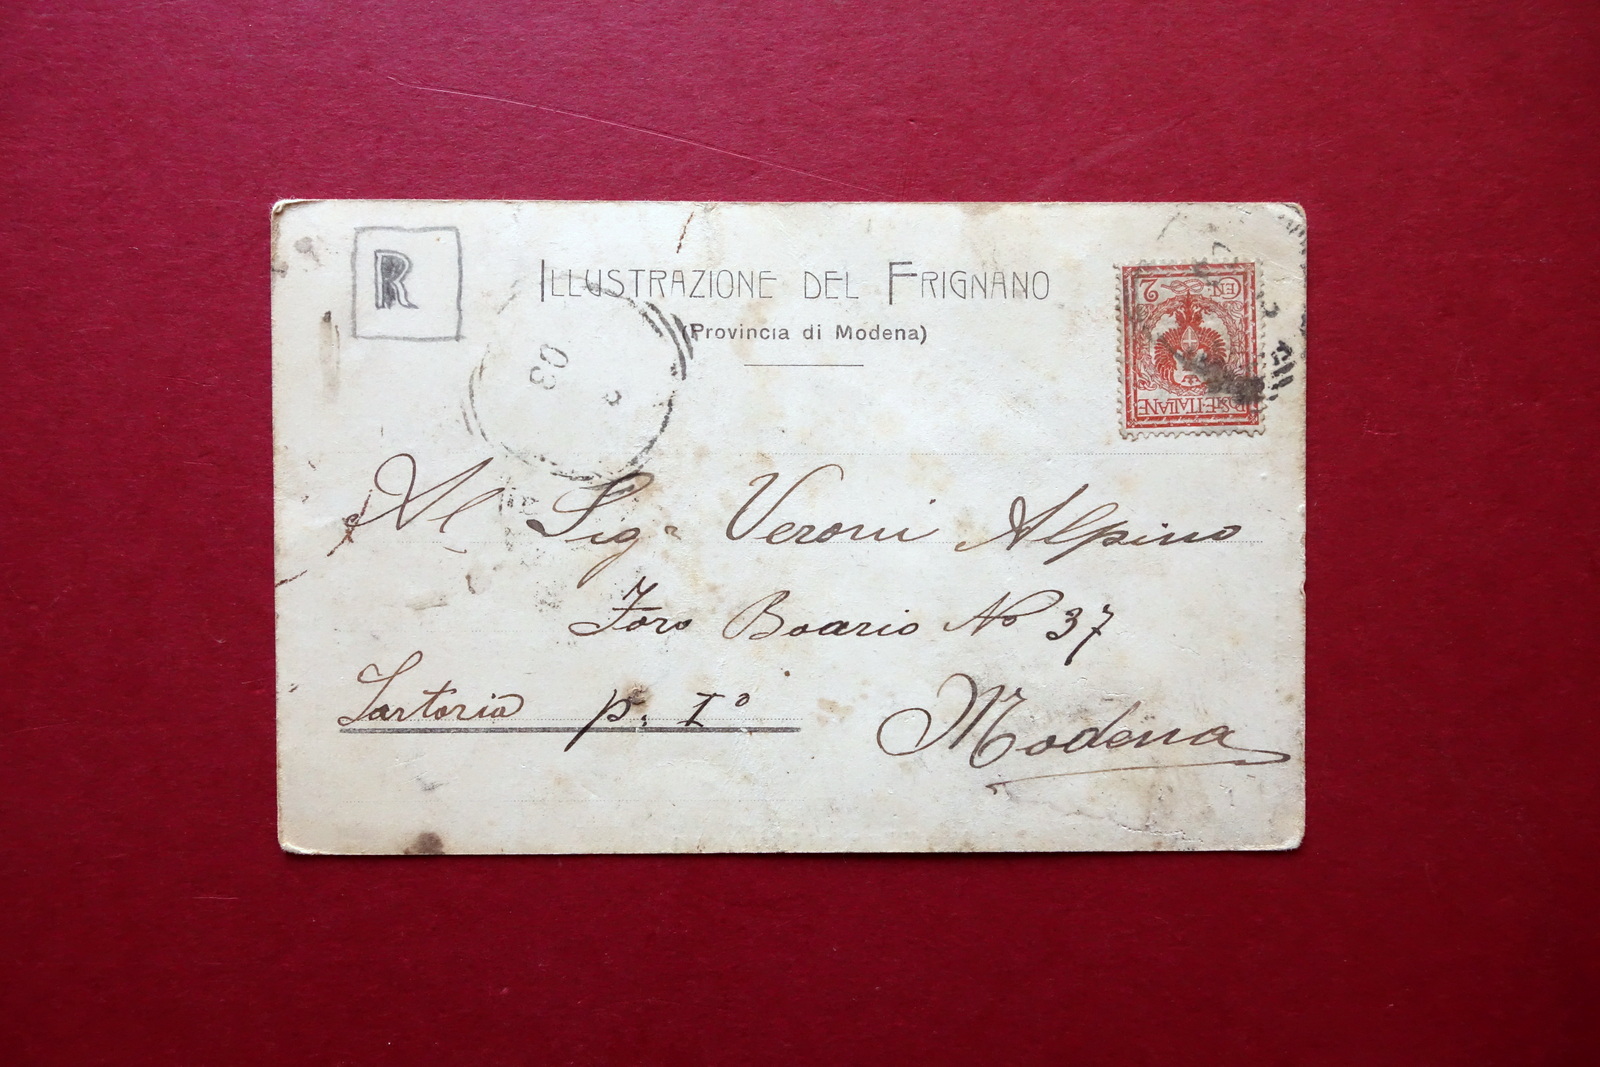 R
ILLUSTRAZIONE DEL FRIGNANO
(Provincia di Modena)
CEN. 2
POSTE·ITALIANE
03
Al Sigr Veroni Alpino
Foro Boario No 37
Sartoria p. Iº
Modena